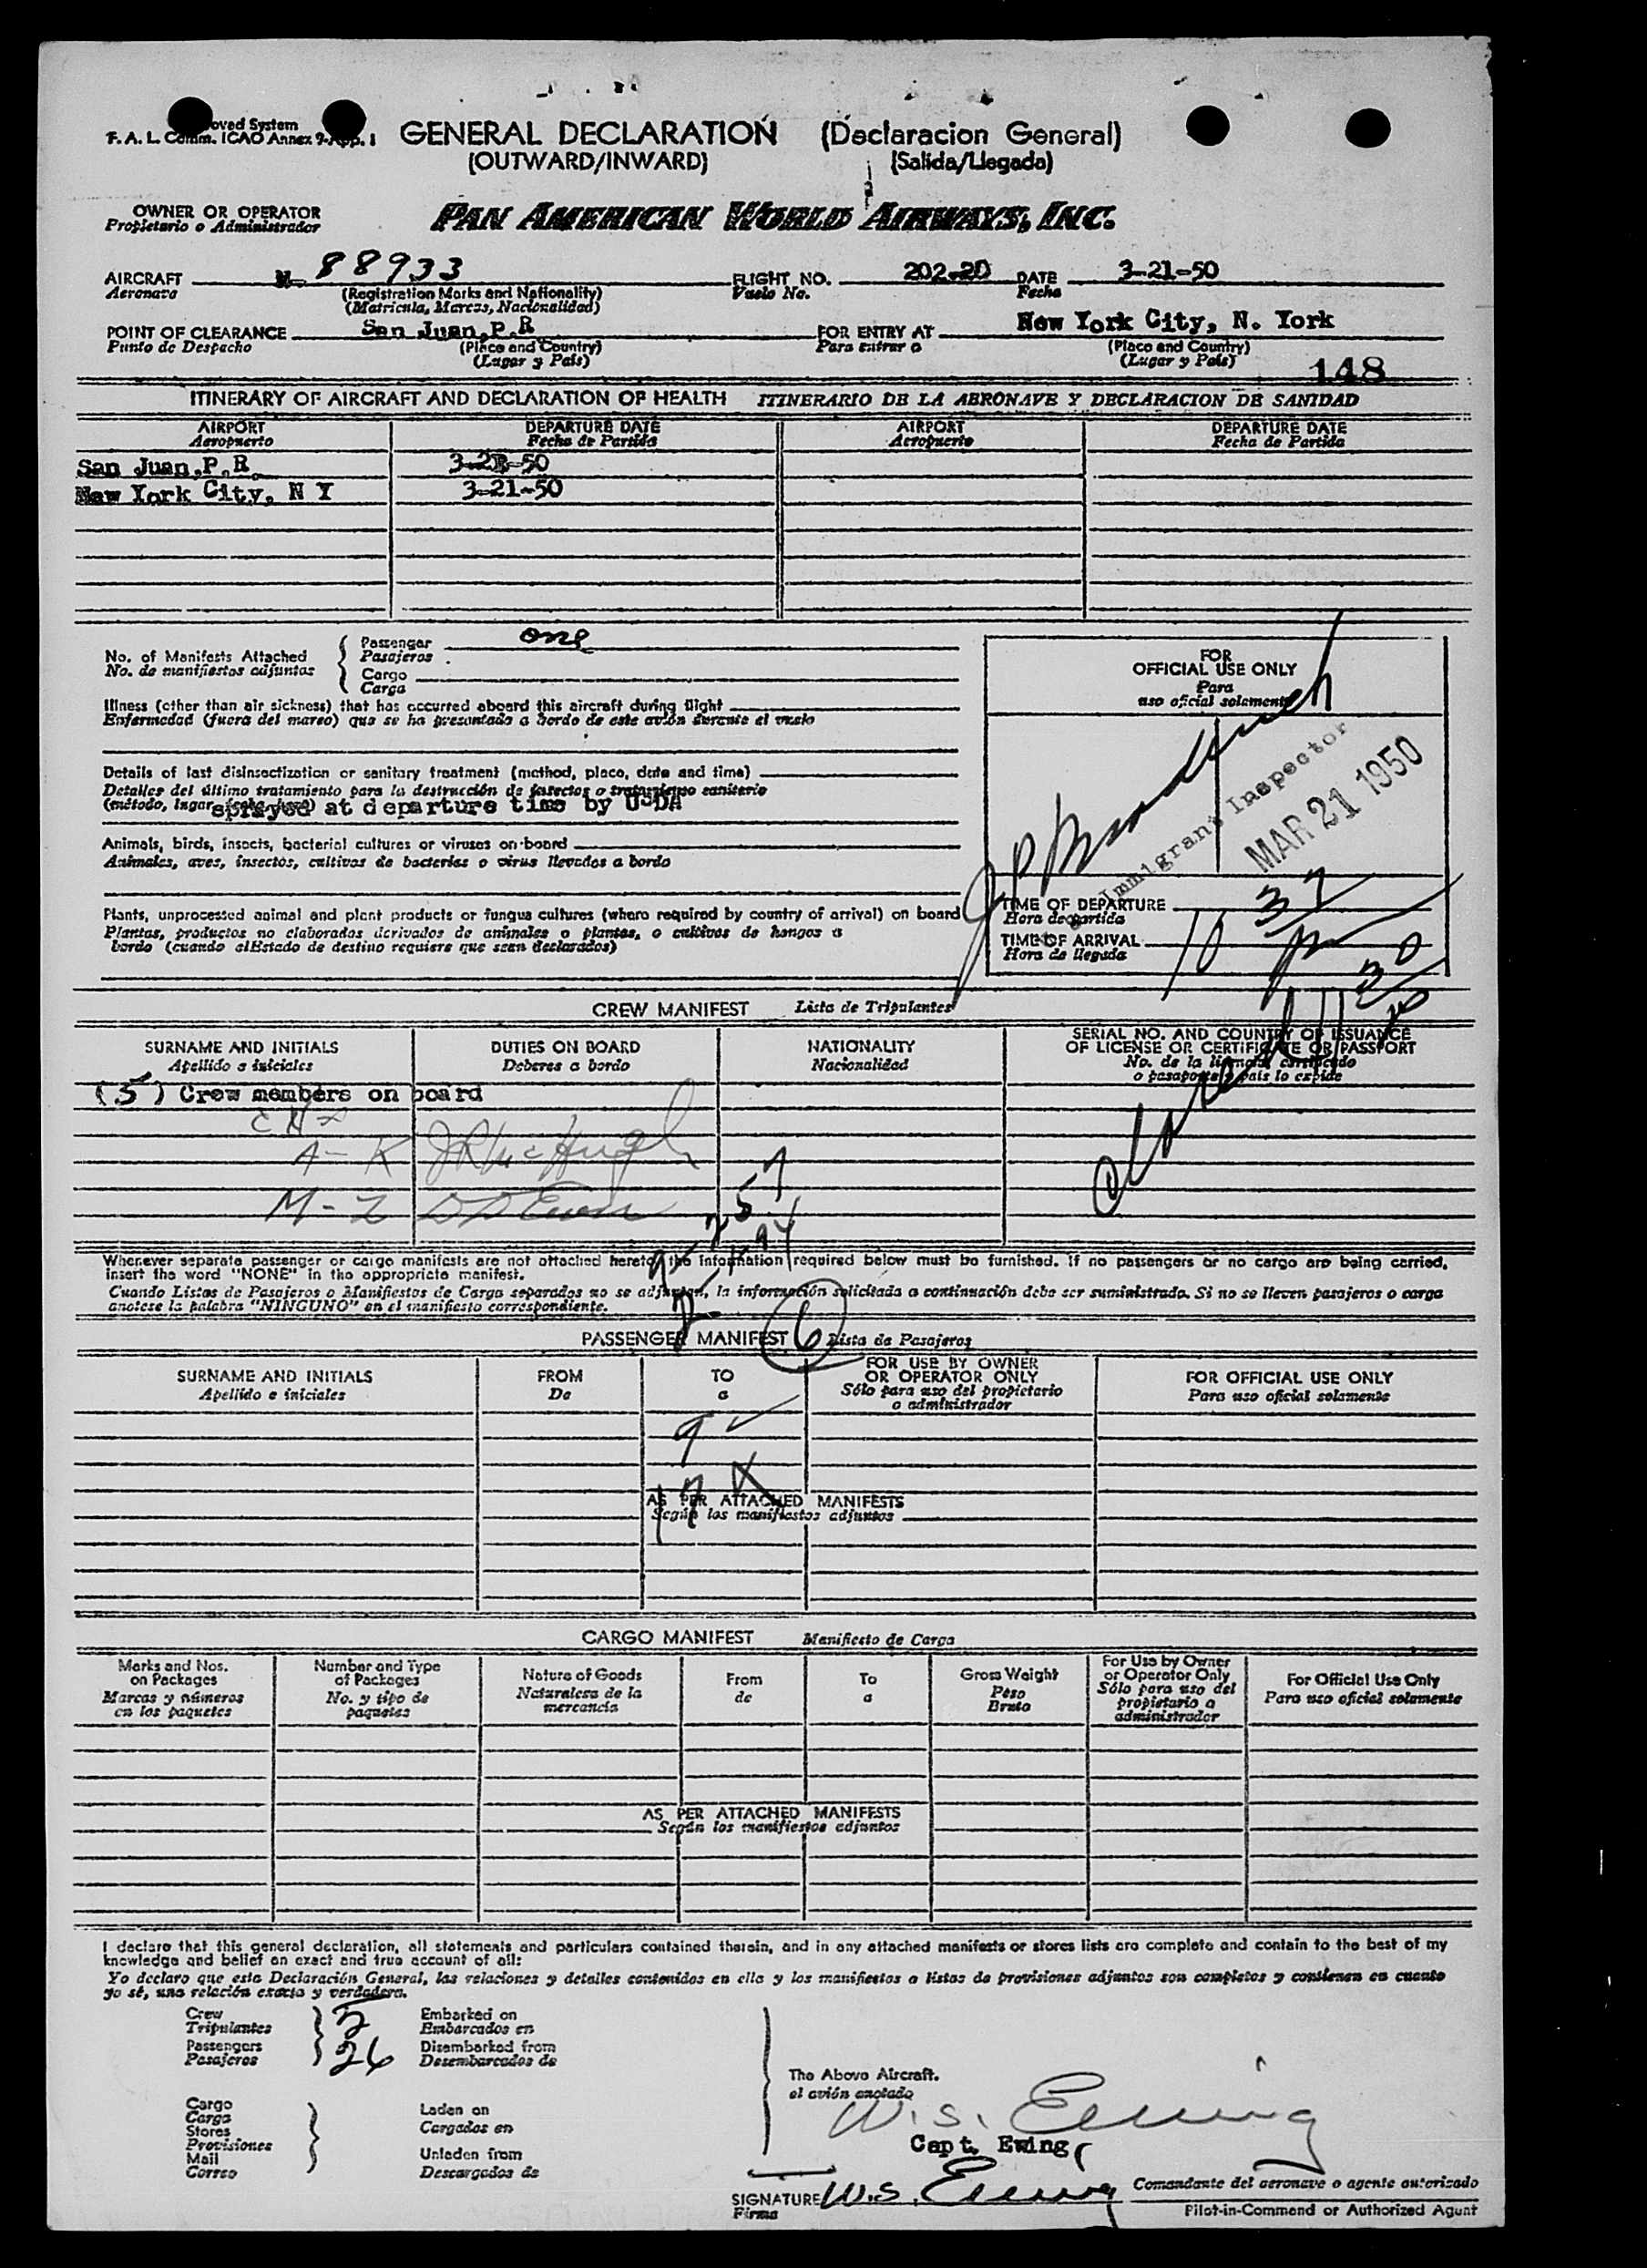 F. A. L. Comm. ICAO Annex 9-App. 1
GENERAL DECLARATION (Declaracion General)
(OUTWARD/INWARD) (Salida/Llegada)
OWNER OR OPERATOR
Propietario o Administrador
PAN AMERICAN WORLD AIRWAYS, INC.
AIRCRAFT N- 88933 FLIGHT NO. 202-20 DATE 3-21-50
Aeronave (Registration Marks and Nationality) Vuelo No. Fecha
(Matricula, Marcas, Nacionalidad)
POINT OF CLEARANCE San Juan, P.R FOR ENTRY AT New York City, N. York
Punto de Despacho (Place and Country) Para entrar a (Place and Country)
(Lugar y País) (Lugar y País)
148
ITINERARY OF AIRCRAFT AND DECLARATION OF HEALTH ITINERARIO DE LA AERONAVE Y DECLARACION DE SANIDAD
AIRPORT DEPARTURE DATE AIRPORT DEPARTURE DATE
Aeropuerto Fecha de Partida Aeropuerto Fecha de Partida
San Juan, P.R.
New York City, N Y 3-21-50
No. of Manifests Attached
No. de manifiestos adjuntas
Passenger one
Pasajeros
Cargo
Carga
Illness (other than air sickness) that has occurred aboard this aircraft during flight
Enfermedad (fuera del mareo) que se ha presentado a bordo de este avión durante el vuelo
Details of last disinsectization or sanitary treatment (method, place, date and time)
Detalles del último tratamiento para la destrucción de insectos o tratamiento sanitario
(método, lugar, sprayed at departure time by USDA
Animals, birds, insects, bacterial cultures or viruses on board
Animales, aves, insectos, cultivos de bacterias o virus llevados a bordo
Plants, unprocessed animal and plant products or fungus cultures (where required by country of arrival) on board
Plantas, productos no elaborados derivados de animales o plantas, o cultivos de hongos a
bordo (cuando el Estado de destino requiere que sean declarados)
FOR
OFFICIAL USE ONLY
Para
uso oficial solamente
Immigrant Inspector
MAR 21 1950
TIME OF DEPARTURE
Hora de partida
TIME OF ARRIVAL
Hora de llegada
CREW MANIFEST Lista de Tripulantes
SURNAME AND INITIALS DUTIES ON BOARD NATIONALITY SERIAL NO. AND COUNTRY OF ISSUANCE
OF LICENSE OR CERTIFICATE OR PASSPORT
Apellido e iniciales Deberes a bordo Nacionalidad No. de la licencia certificado
o pasaporte y pais lo expide
(5) Crew members on board
A-K J R McHugh
M-Z
Whenever separate passenger or cargo manifests are not attached hereto, the information required below must be furnished. If no passengers or no cargo are being carried,
insert the word "NONE" in the appropriate manifest.
Cuando Listas de Pasajeros o Manifiestos de Carga separados no se adjuntan, la información solicitada a continuación debe ser suministrada. Si no se lleven pasajeros o carga
anotese la palabra "NINGUNO" en el manifiesto correspondiente.
PASSENGER MANIFEST 6 Lista de Pasajeros
SURNAME AND INITIALS FROM TO FOR USE BY OWNER
OR OPERATOR ONLY FOR OFFICIAL USE ONLY
Apellido e iniciales De a Sólo para uso del propietario
o administrador Para uso oficial solamente
9
AS PER ATTACHED MANIFESTS
Según los manifiestos adjuntos
CARGO MANIFEST Manifiesto de Carga
Marks and Nos.
on Packages
Marcas y números
en los paquetes
Number and Type
of Packages
No. y tipo de
paquetes
Nature of Goods
Naturalesa de la
mercancia
From
de
To
a
Gross Weight
Peso
Bruto
For Use by Owner
or Operator Only
Sólo para uso del
propietario o
administrador
For Official Use Only
Para uso oficial solamente
AS PER ATTACHED MANIFESTS
Según los manifiestos adjuntos
I declare that this general declaration, all statements and particulars contained therein, and in any attached manifests or stores lists are complete and contain to the best of my
knowledge and belief an exact and true account of all:
Yo declaro que esta Declaración General, las relaciones y detalles contenidos en ella y los manifiestos o listas de provisiones adjuntos son completos y contienen en cuanto
yo sé, una relación exacta y verdadera.
Crew 5 Embarked on
Tripulantes Embarcados en
Passengers 26 Disembarked from
Pasajeros Desembarcados de
Cargo
Carga
Stores
Provisiones
Mail
Correo
Laden on
Cargados en
Unladen from
Descargados de
The Above Aircraft.
el avión anotado
W. S. Ewing
Capt. Ewing
SIGNATURE W. S. Ewing Comandante del aeronave o agente autorizado
Firma Pilot-in-Command or Authorized Agent